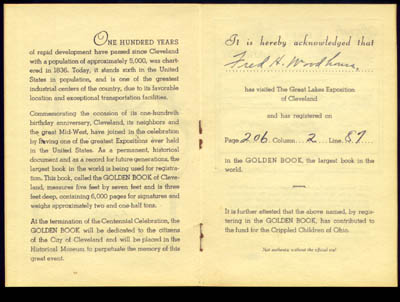 ONE HUNDRED YEARS
of rapid development have passed since Cleveland
with a population of approximately 5,000, was chart-
ered in 1836. Today, it stands sixth in the United
States in population, and is one of the greatest
industrial centers of the country, due to its favorable
location and exceptional transportation facilities.
Commemorating the occasion of its one-hundredth
birthday anniversary, Cleveland, its neighbors and
the great Mid-West, have joined in the celebration
by having one of the greatest Expositions ever held
in the United States. As a permanent, historical
document and as a record for future generations, the
largest book in the world is being used for registra-
tion. This book, called the GOLDEN BOOK of Cleve-
land, measures five feet by seven feet and is three
feet deep, containing 6,000 pages for signatures and
weighs approximately two and one-half tons.
At the termination of the Centennial Celebration, the
GOLDEN BOOK will be dedicated to the citizens
of the City of Cleveland and will be placed in the
Historical Museum to perpetuate the memory of this
great event.
It is hereby acknowledged that
Fred H. Woodhouse
has visited The Great Lakes Exposition
of Cleveland
and has registered on
Page 206 Column 2 Line 87
in the GOLDEN BOOK, the largest book in the
world.
It is further attested that the above named, by regis-
tering in the GOLDEN BOOK, has contributed to
the fund for the Crippled Children of Ohio.
Not authentic without the official seal